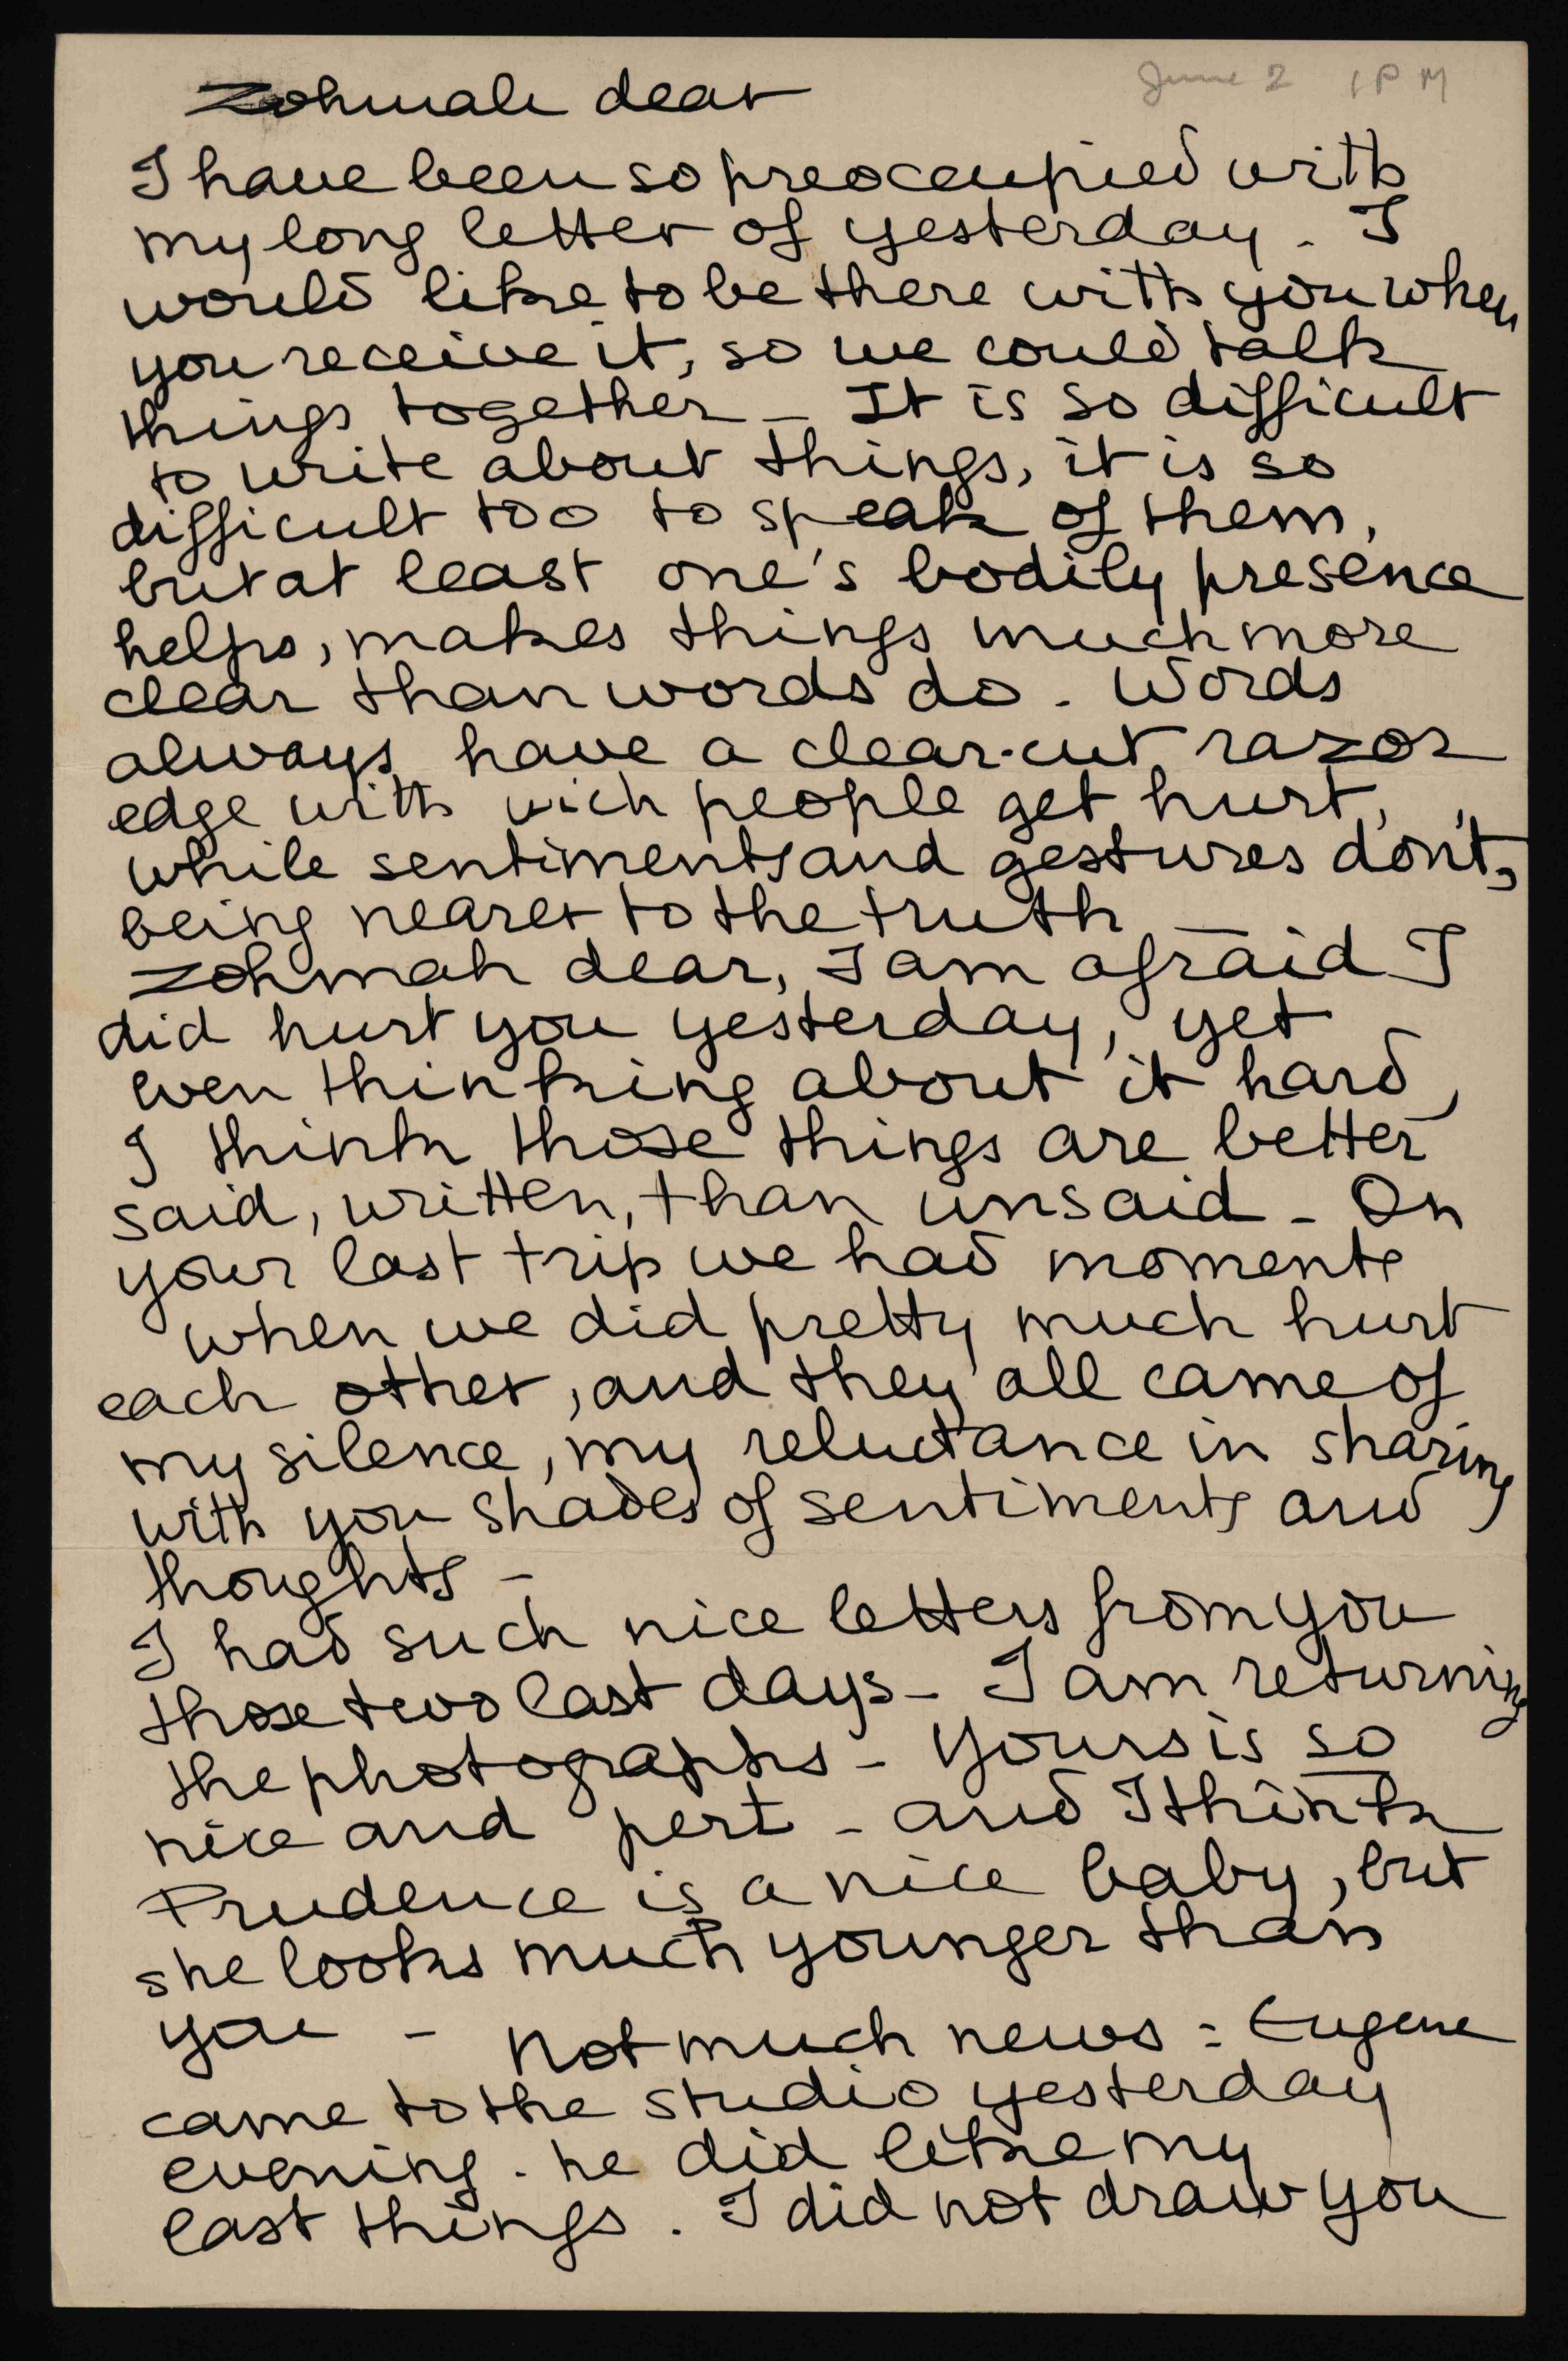 June 2 1 P M
Zohmah dear
I have been so preoccupied with
my long letter of yesterday. I
would like to be there with you when
you receive it, so we could talk
things together - It is so difficult
to write about things, it is so
difficult too to speak of them,
but at least one's bodily presence
helps, makes things much more
clear than words do. Words
always have a clear-cut razor
edge with wich people get hurt,
while sentiments and gestures don't,
being nearer to the truth -
Zohmah dear, I am afraid I
did hurt you yesterday, yet
even thinking about it hard,
I think those things are better
said, written, than unsaid - On
your last trip we had moments
when we did pretty much hurt
each other, and they all came of
my silence, my reluctance in sharing
with you shades of sentiments and
thoughts -
I had such nice letters from you
those two last days - I am returning
the photographs - Yours is so
nice and pert - and I think
Prudence is a nice baby, but
she looks much younger than
you - Not much news : Eugene
came to the studio yesterday
evening. he did like my
last things. I did not draw you